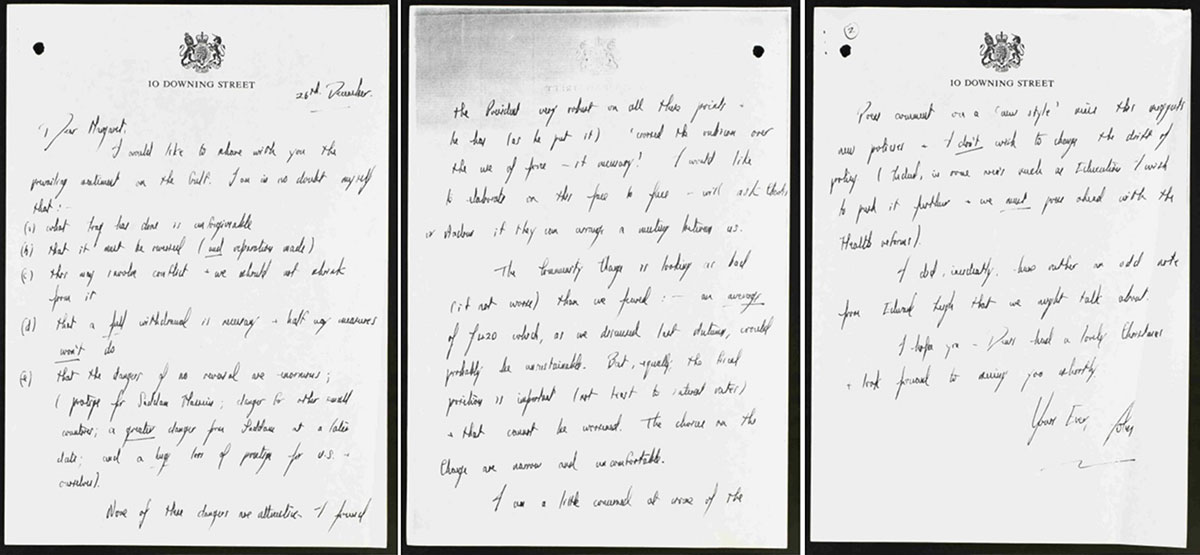 10 DOWNING STREET
26th December.
Dear Margaret,
I would like to share with you the
prevailing sentiment on the Gulf. I am in no doubt myself
that:-
(a) what Iraq has done is unforgivable
(b) that it must be reversed (and reparation made)
(c) this may involve conflict + we should not shrink
from it
(d) that a full withdrawal is necessary + half way measures
won't do
(e) that the dangers of no reversal are enormous;
(prestige for Saddam Hussein; danger for other small
countries; a greater danger from Saddam at a later
date; and a huge loss of prestige for U.S. +
ourselves).
None of these dangers are attractive. I found
the President very robust on all these points +
he has (as he put it) 'crossed the rubicon over
the use of force - if necessary! I would like
to elaborate on this face to face - will ask
or Andrew if they can arrange a meeting between us.
The Community Charge is looking as bad
(if not worse) than we feared :- an average
of £420 which, as we discussed last Autumn, would
probably be unsustainable. But, equally the fiscal
position is important (not least to interest rates)
+ that cannot be worsened. The choices on the
Charge are narrow and uncomfortable.
I am a little concerned at some of the
2
10 DOWNING STREET
Press comment on a 'new style' since this suggests
new policies - I don't wish to change the drift of
policy (Indeed, in some areas such as Education I wish
to push it further + we must press ahead with the
Health reforms).
I did, incidentally, have rather an odd note
from Edward Leigh that we might talk about.
I hope you + Denis had a lovely Christmas
+ look forward to seeing you shortly.
Yours Ever,
John